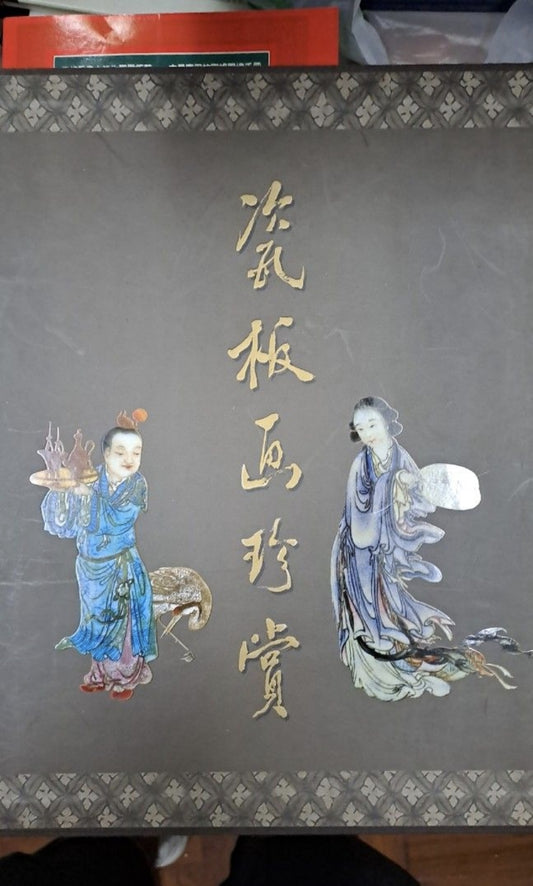 瓷板画珍赏